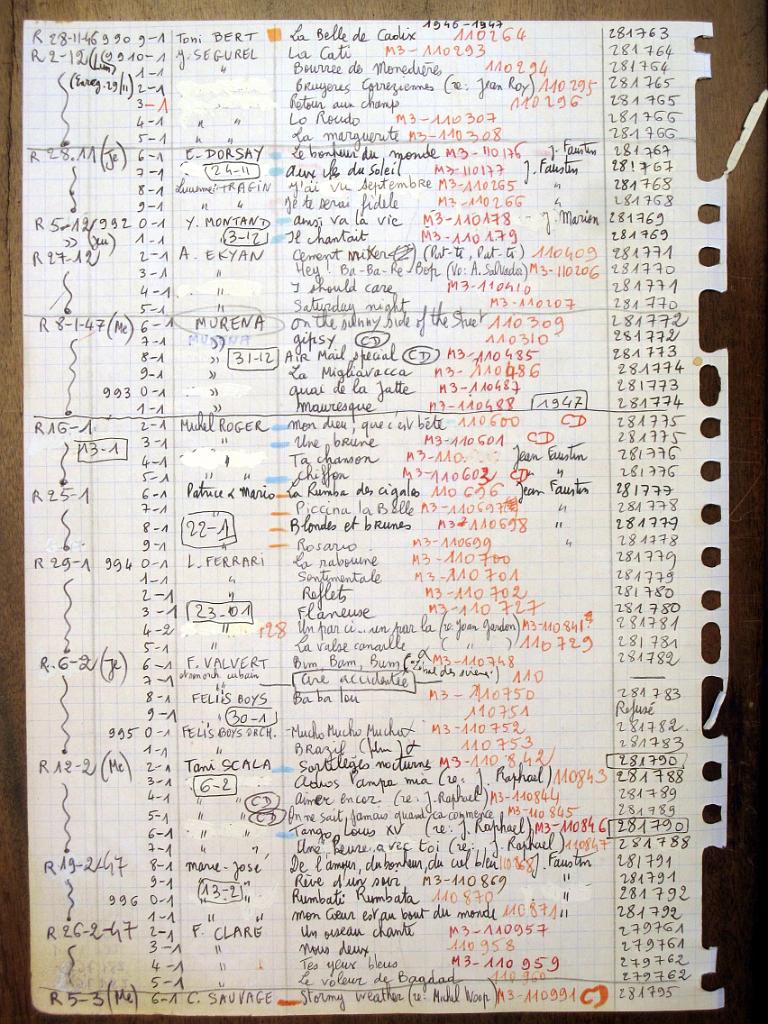 1946-1947
R 28-11-46 990 9-1 Toni BERT La Belle de Cadix 110264 281763
R 2-12 (Lun) 990-1 J. SEGUREL La Cati M3-110293 281764
(Enreg. 29/11) 1-1 " Bourrée de Monedières 110294 281764
2-1 Bruyeres Correziennes (re: Jean Roy) 110295 281765
3-1 Retour aux champ 110296 281765
4-1 " " Lo Roudo M3-110307 281766
5-1 " " La marguerite M3-110308 281766
R 28.11 (Je) 6-1 E. DORSAY Le bonheur du monde M3-110176 J. Faustin 281767
7-1 24-11 aux iles du Soleil M3-110177 J. Faustin 281767
8-1 TRAGIN J'ai vu Septembre M3-110265 " 281768
9-1 Je te serai fidele M3-110266 " 281768
R 5-12 992 0-1 Y. MONTAND ainsi va la vie M3-110178 J. Marion 281769
1-1 3-12 Il chantait M3-110179 281769
R 27-12 2-1 A. EKYAN Cement mixer (Put-ti, Put-ti) 110409 281771
3-1 " Hey! Ba-Ba-Re-Bop (Vo: A. Salvador) M3-110206 281770
4-1 " I should care M3-110410 281771
5-1 " Saturday night M3-110207 281770
R 8-1-47 (Me) 6-1 MURENA on the sunny side of the Street 110309 281772
7-1 " gipsy CD 110310 281772
8-1 " 31-12 AIR Mail special CD M3-110485 281773
9-1 " La Migliavacca M3-110486 281774
993 0-1 " quai de la Jatte M3-110487 281773
1-1 " Mauresque M3-110488 1947 281774
R 16-1 2-1 Michel ROGER mon dieu! que c'est bête 110600 CD 281775
13-1 3-1 " Une brune M3-110601 CD 281775
4-1 " Ta chanson M3-110 Jean Faustin 281776
5-1 " " Chiffon M3-110602 CD " 281776
R 25-1 6-1 Patrice & Mario La Rumba des cigales 110696 Jean Faustin 281777
7-1 Piccina la Belle M3-110697 " 281778
8-1 22-1 Blondes et brunes M3-110698 " 281779
9-1 " Rosario M3-110699 " 281778
R 29-1 994 0-1 L. FERRARI La rabouine M3-110700 281779
1-1 " Sentimentale M3-110701 281779
2-1 " Reflets M3-110702 281780
3-1 23-01 Flaneuse M3-110727 281780
4-2 728 Un par ci... un par la (re: Jean Gardon) M3-110841? 281781
5-1 " La valse canaille ( " ) 110729 281781
R. 6-2 (Je) 6-1 F. VALVERT Bim, Bam, Bum M3-110748 281782
7-1 cubain Cire accidentée 110
8-1 FELIS BOYS Babalou M3-110750 281783
9-1 30-1 110751 Refusé
995 0-1 FELIS BOYS ORCH. Mucho Mucho Mucho M3-110752 281782
1-1 " Brazil (film) 110753 281783
R 12-2 (Me) 2-1 Tani SCALA Sortilèges nocturnes M3-110842 281790
3-1 6-2 Adios Pampa mia (re: J. Raphael) 110843 281788
4-1 " CD aimer encor (re: J. Raphael) M3-110844 281789
5-1 " CD On ne sait jamais quand ça commence M3-110845 281789
6-1 " " Tango Louis XV (re: J. Raphael) M3-110846 281790
7-1 " " Une heure avec toi (re: J. Raphael) 110847 281788
R 19-2/47 8-1 marie-josé De l'amour, du bonheur, du ciel bleu 110868 J. Faustin 281791
9-1 13-2 Rêve d'un soir M3-110869 " 281791
996 0-1 " Rumbati Rumbata 110870 " 281792
1-1 " " mon Cœur est au bout du monde 110871 " 281792
R 26-2-47 2-1 F. CLARE Un oiseau chante M3-110957 279761
3-1 " nous deux 110958 279761
4-1 " Tes yeux bleus M3-110959 279762
5-1 " Le voleur de Bagdad 110960 279762
R 5-3 (Me) 6-1 C. SAUVAGE Stormy weather (re: Michel Warop) M3-110991 281795